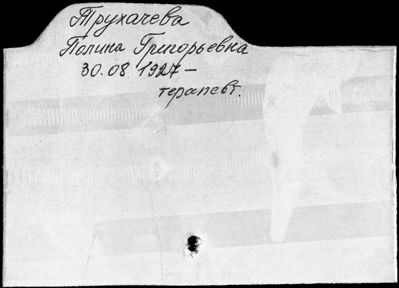 Трухачева
Полина Григорьевна
30.08.1927 –
терапевт.